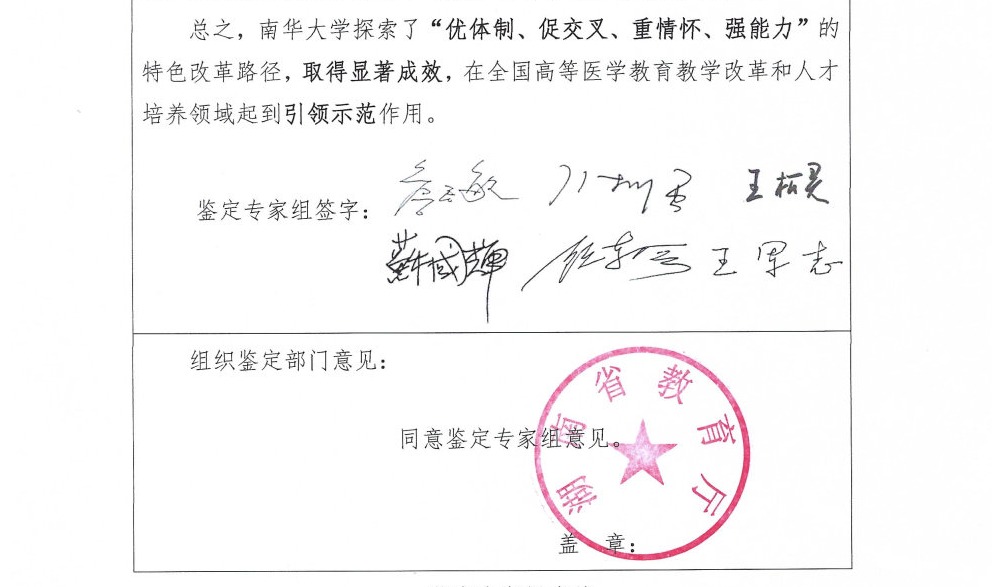 总之，南华大学探索了“优体制、促交叉、重情怀、强能力”的
特色改革路径，取得显著成效，在全国高等医学教育教学改革和人才
培养领域起到引领示范作用。
鉴定专家组签字：
王松灵
蘇國輝 王军志
组织鉴定部门意见：
湖南省教育厅
同意鉴定专家组意见。
盖 章：